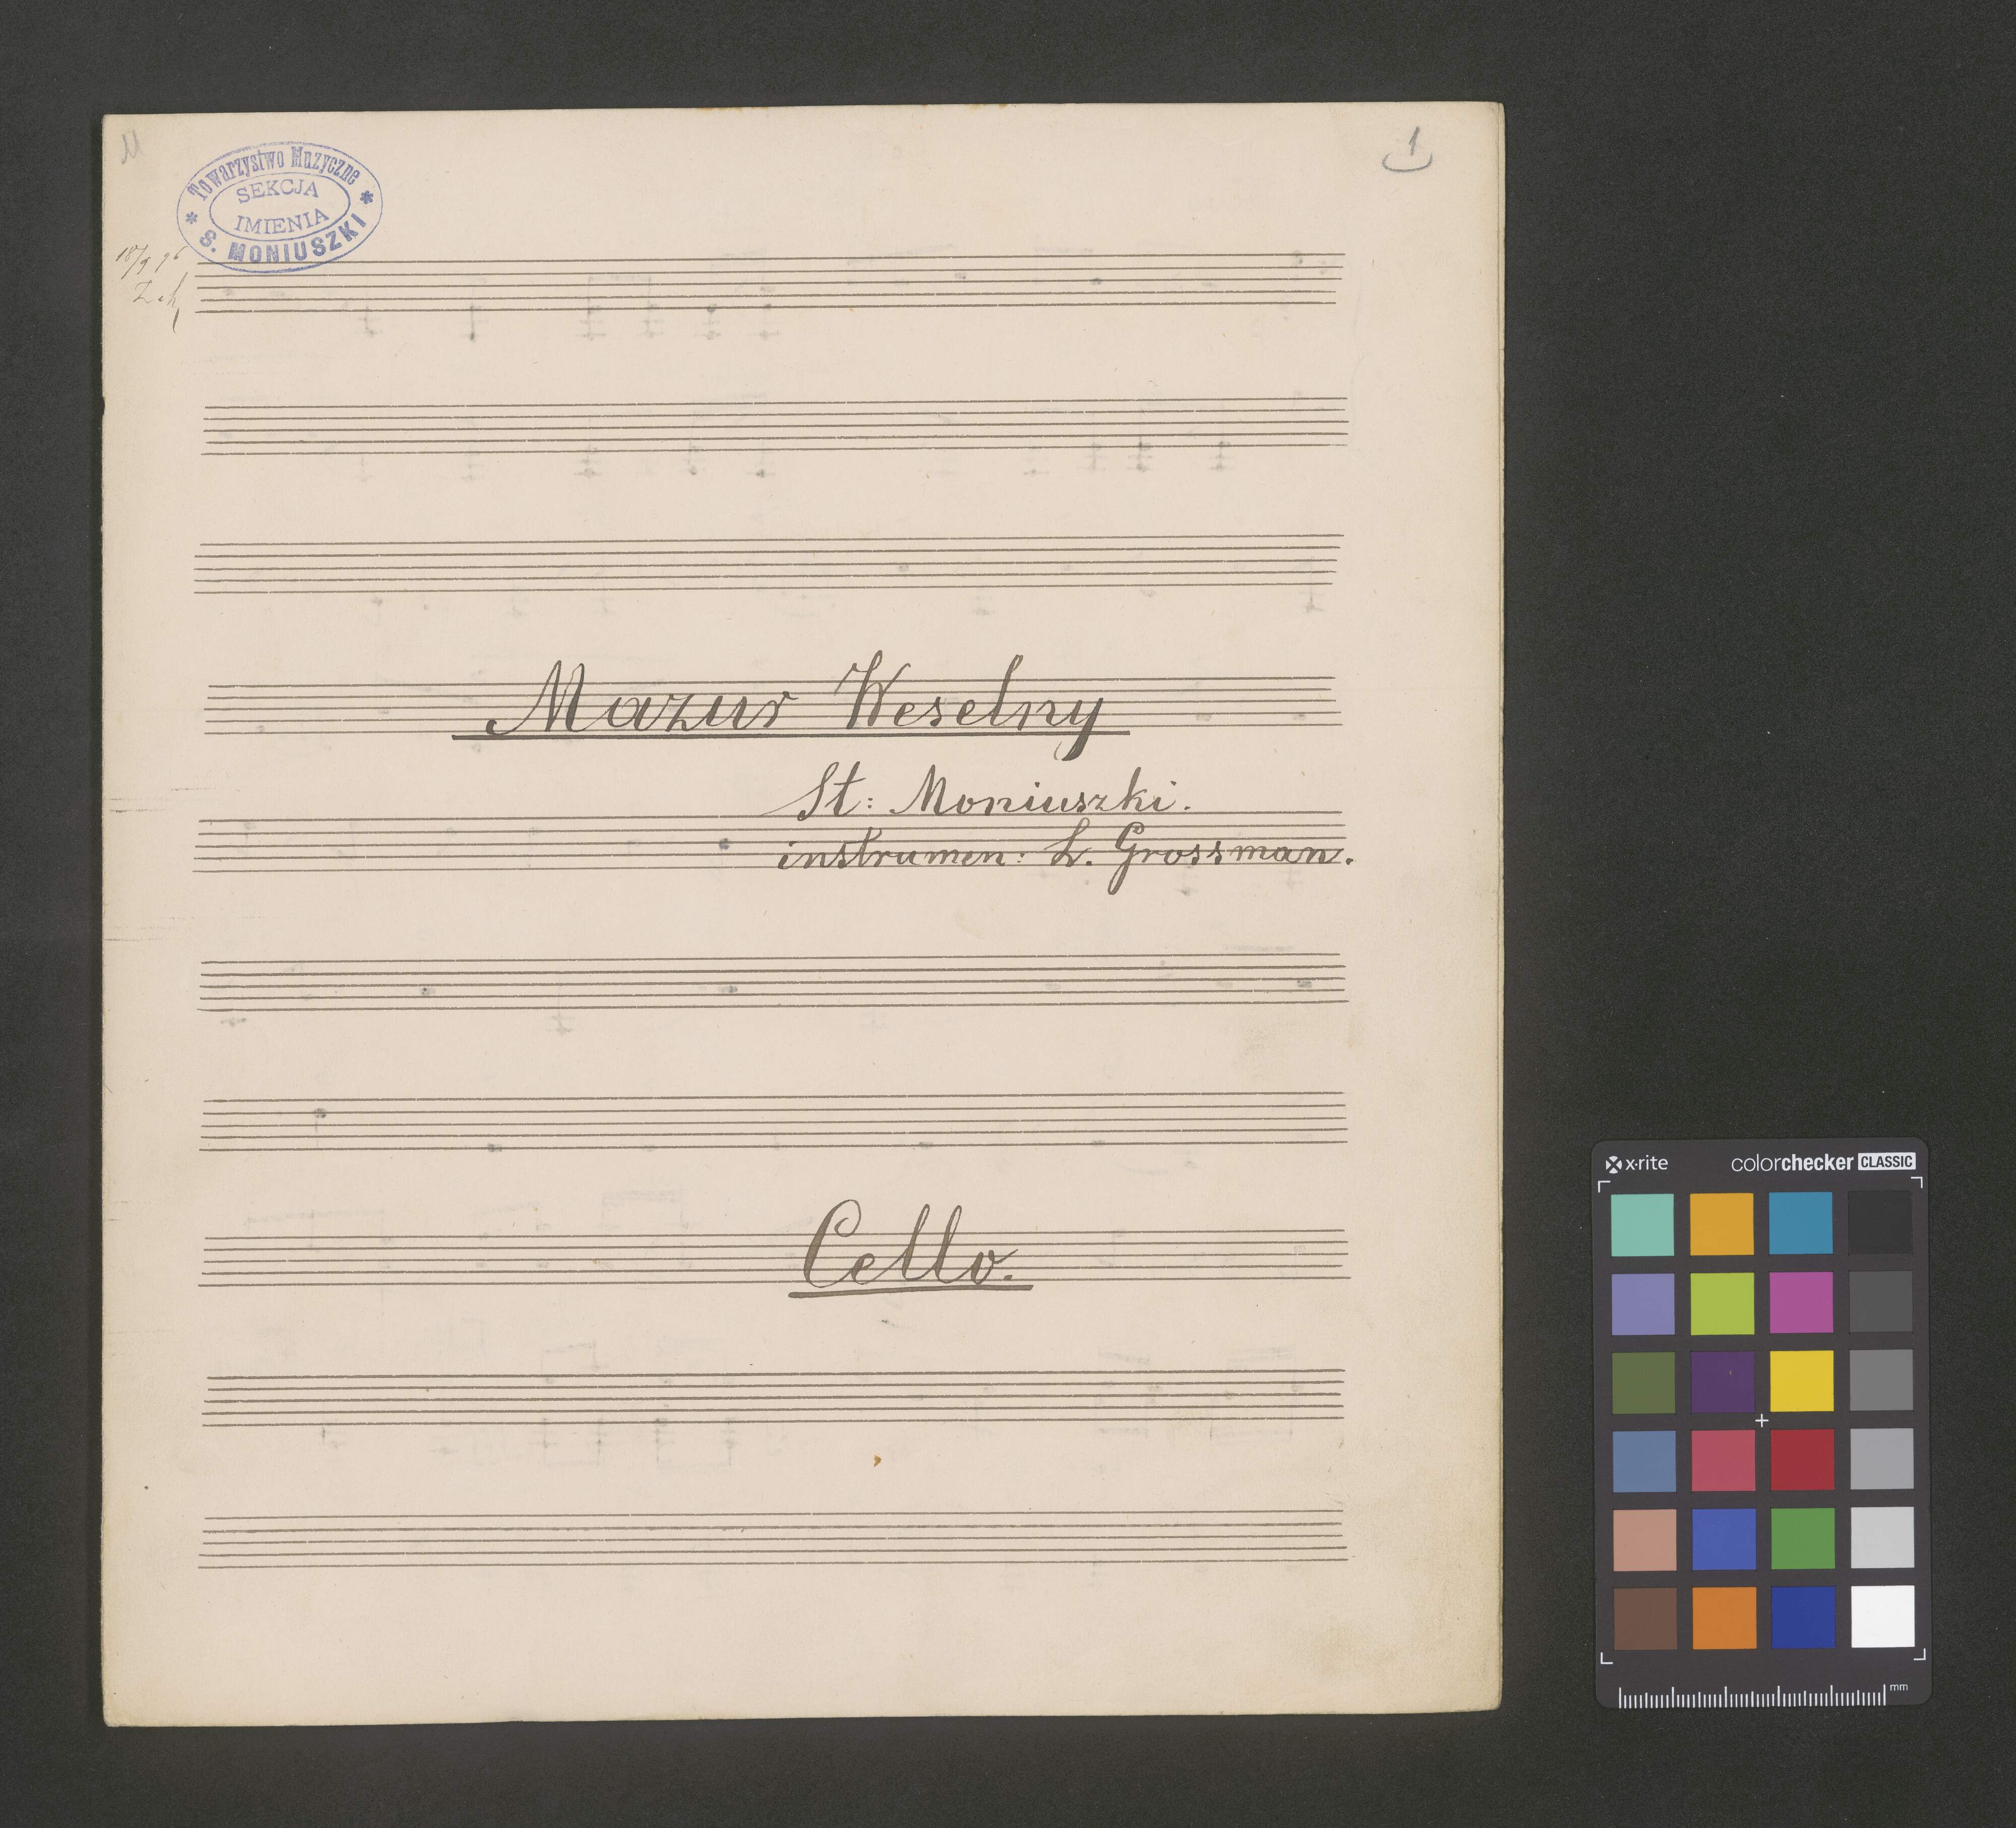 1
Towarzystwo Muzyczne
SEKCJA
IMIENIA
S. MONIUSZKI
Mazur Weselny
St: Moniuszki.
instrumen: L. Grossman.
Cello.
x·rite colorchecker CLASSIC
mm